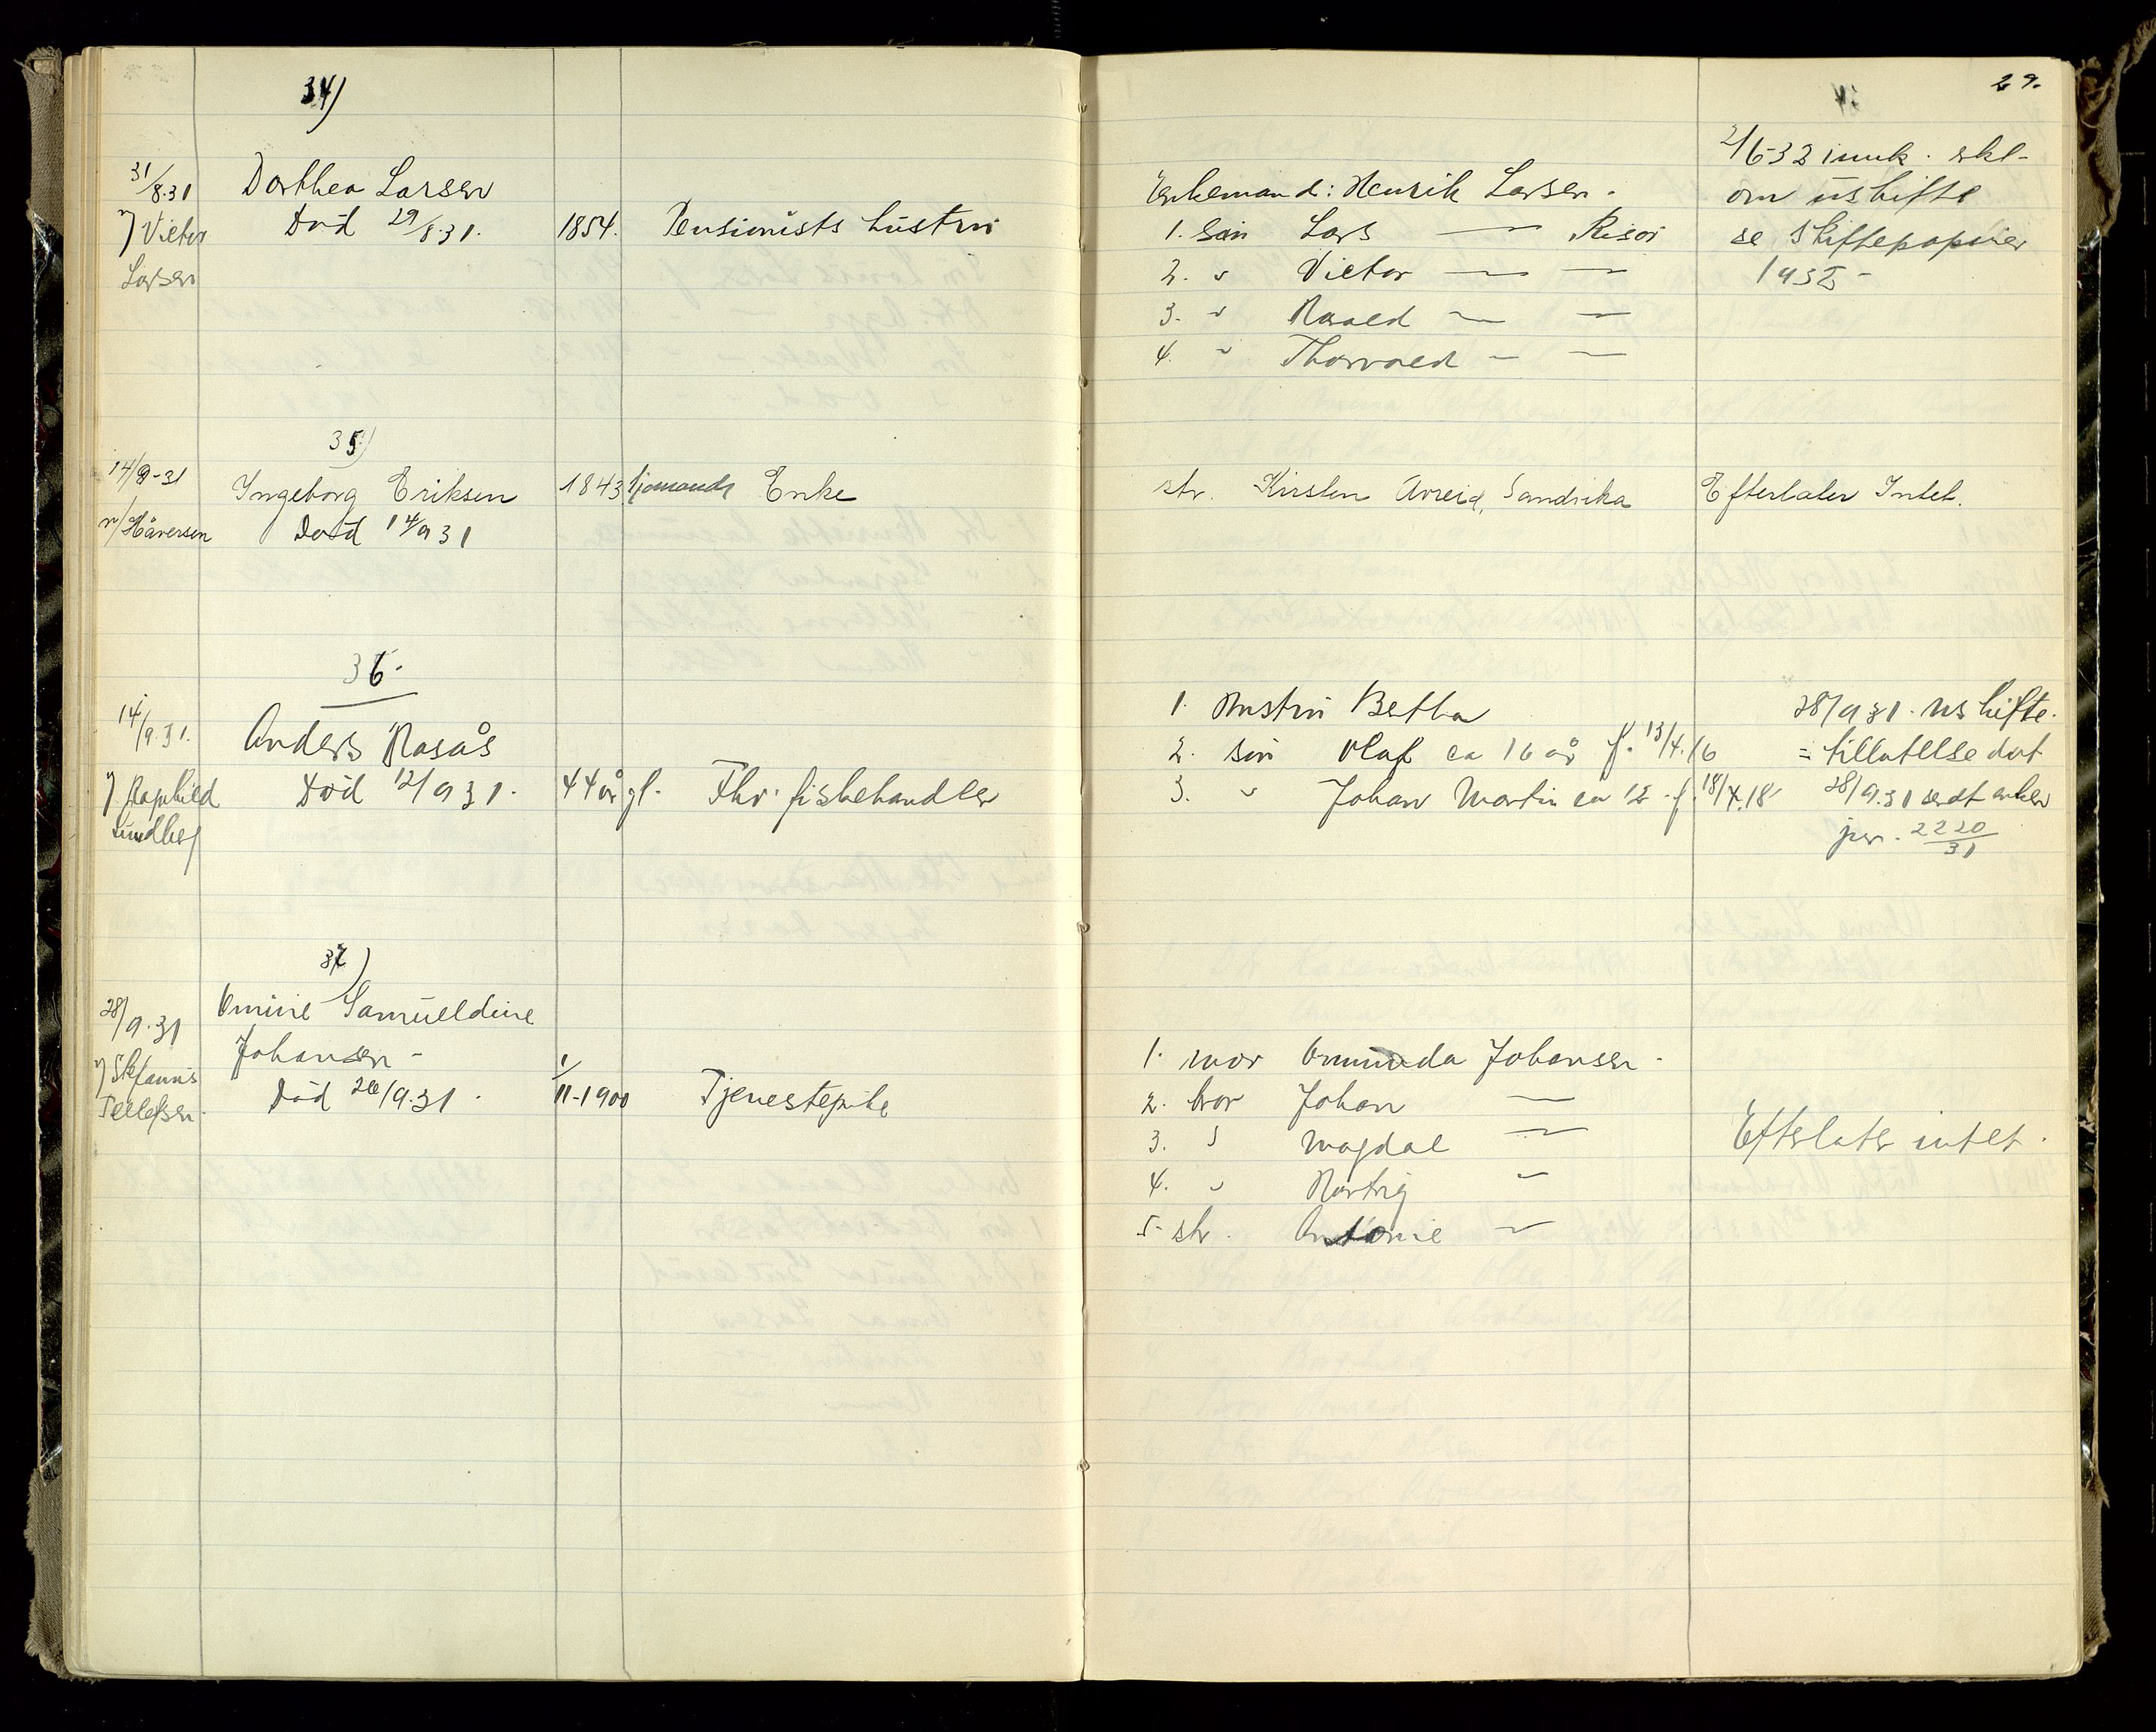 29.
34)
31/8.31 Dorthea Larsen
v/ Victor Død 29/8.31. 1854. Pensionists hustru
Larsen
Enkemand: Henrik Larsen.
1. Søn Lars — Risør
2. " Victor — —
3. " Harald — —
4. " Thorvald — —
2/6 32 innk. skl-
om uskifte
se skiftepapirer
1932-
35)
14/9-31 Ingeborg Eriksen 1843 Sjømands Enke
v/ Håversen Død 14/9 31
str. Kirsten Sandvika
Efterlater Intet.
36.
14/9.31. Anders Rasås
v/ Død 12/9 31. 44 år gl. Fhv. fiskehandler
Lundberg
1. Hustru Bertha
2. søn Olaf ca 16 år f. 13/4.16
3. " Johan Martin ca 12 f. 18/4.18
28/9 31. uskifte-
= tillatelse dat
28/9.31 sendt enken
jnr. 2220/31
37)
28/9.31 Omine Samueldine
Johansen -
v/ Stefanus Død 26/9.31. 1/11-1900 Tjenestepike
Tellefsen.
1. mor Omunda Johansen.
2. bror Johan —
3. " Magdal —
4. " Hartvig "
5. str. Antonie —
Efterlater intet.